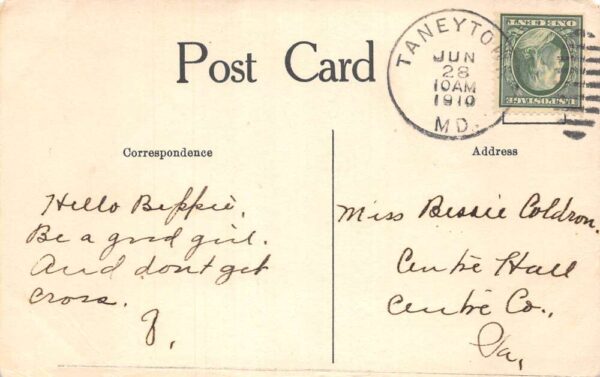 Post Card
TANEYTOWN
JUN
28
10AM
1910
MD.
ONE CENT
U.S. POSTAGE
Correspondence
Address
Hello Beppie,
Be a good girl.
And dont get
cross.
J.
Miss Bessie Coldron.
Centre Hall
Centre Co.,
Pa,